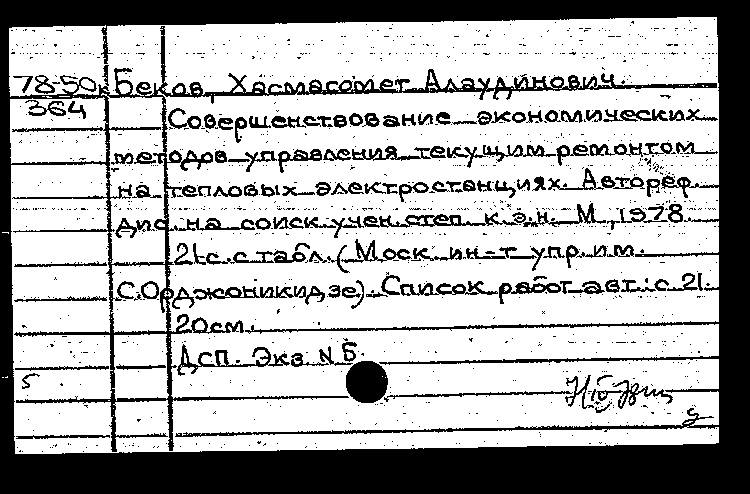 78-50к Беков, Хасмагомет Алаудинович.
364
Совершенствование экономических
методов управления текущим ремонтом
на тепловых электростанциях. Автореф.
дис. на соиск. учен. степ. к.э.н. М., 1978.
21 с. с табл. (Моск. ин-т упр. им.
С. Орджоникидзе). Список работ авт.: с. 21.
20 см.
Дсп. Экз. N 5.
5